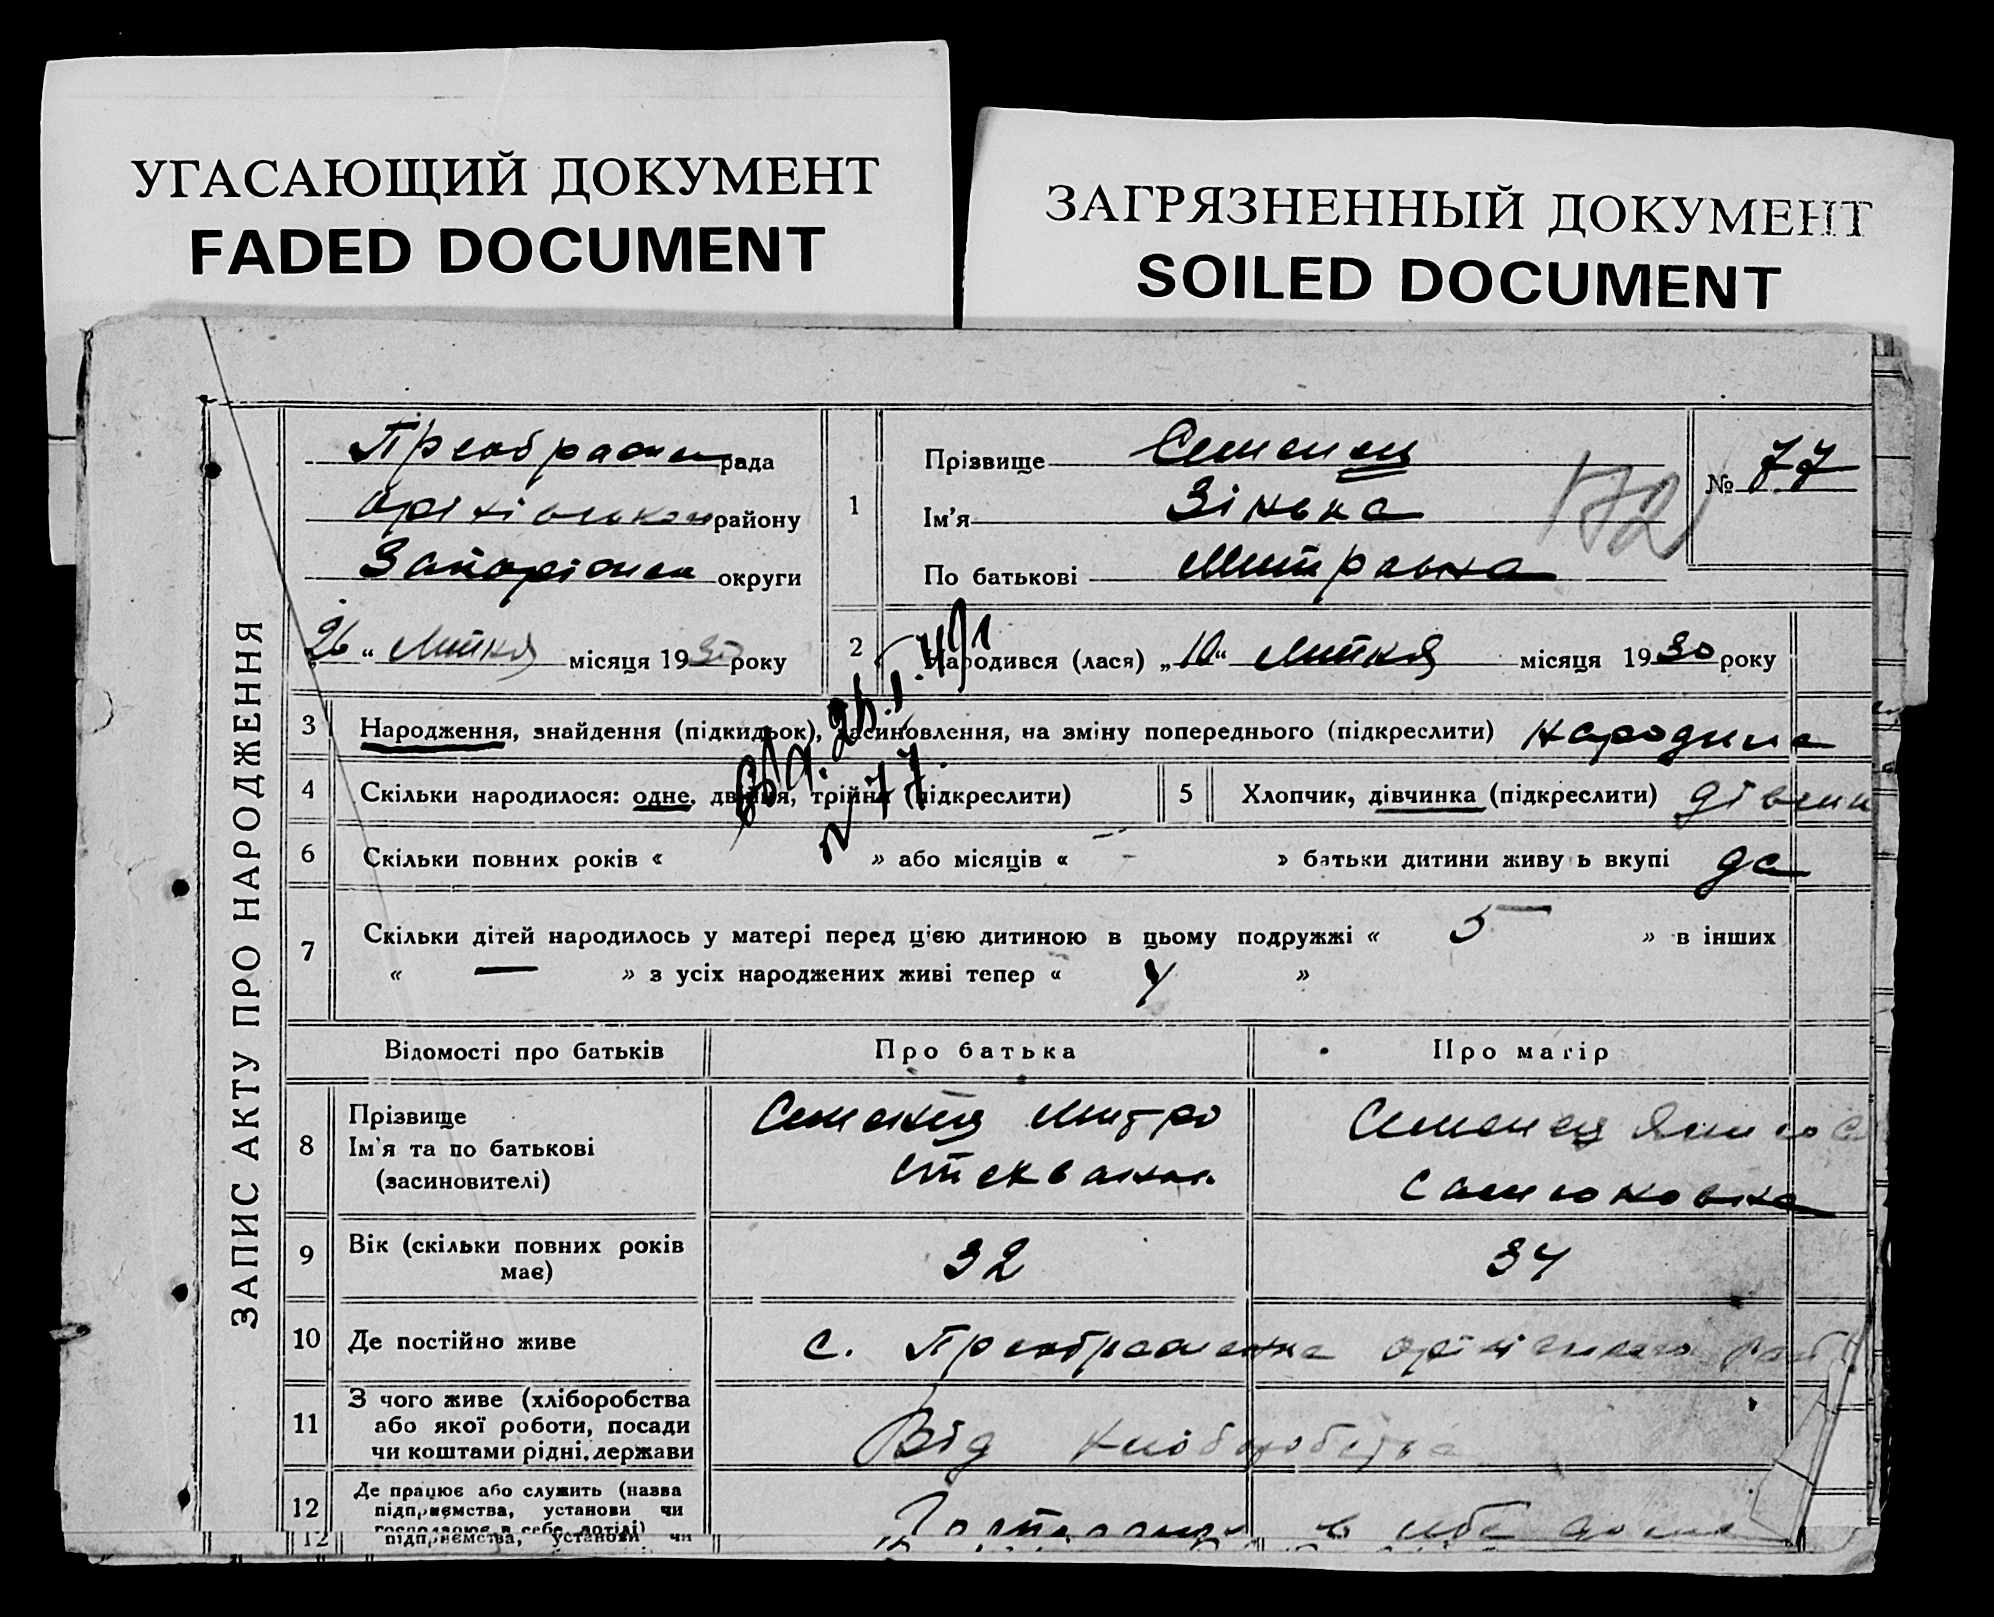 УГАСАЮЩИЙ ДОКУМЕНТ
FADED DOCUMENT
ЗАГРЯЗНЕННЫЙ ДОКУМЕНТ
SOILED DOCUMENT
ЗАПИС АКТУ ПРО НАРОДЖЕННЯ
Преображен рада
району
Запоріжен округи
26 “ Лютня місяця 1930 року
1
Прізвище Семенец
Ім'я Зінька
По батькові Митравна
172
№ 77
2
Народився (лася) „ 10 “ Лютня місяця 1930 року
3 Народження, знайдення (підкидьок), засиновлення, на зміну попереднього (підкреслити) народился
4 Скільки народилося: одне, двійня, трійня (підкреслити)
№ 77.
5 Хлопчик, дівчинка (підкреслити) дівчин
6 Скільки повних років « » або місяців « — » батьки дитини живуть вкупі да
7 Скільки дітей народилось у матері перед цією дитиною в цьому подружжі « 5 » в інших
« — » з усіх народжених живі тепер « 4 »
Відомості про батьків Про батька Про матір
8 Прізвище
Ім'я та по батькові
(засиновителі)
Семенец Митро
Семенец
9 Вік (скільки повних років
має)
32 34
10 Де постійно живе с. Преображенка
11 З чого живе (хліборобства
або якої роботи, посади
чи коштами рідні, держави
Від хліборобства
12 Де працює або служить (назва
підприємства, установи чи
господарює в себе, дотілі)
в себе дома
12 підприємства, установи чи